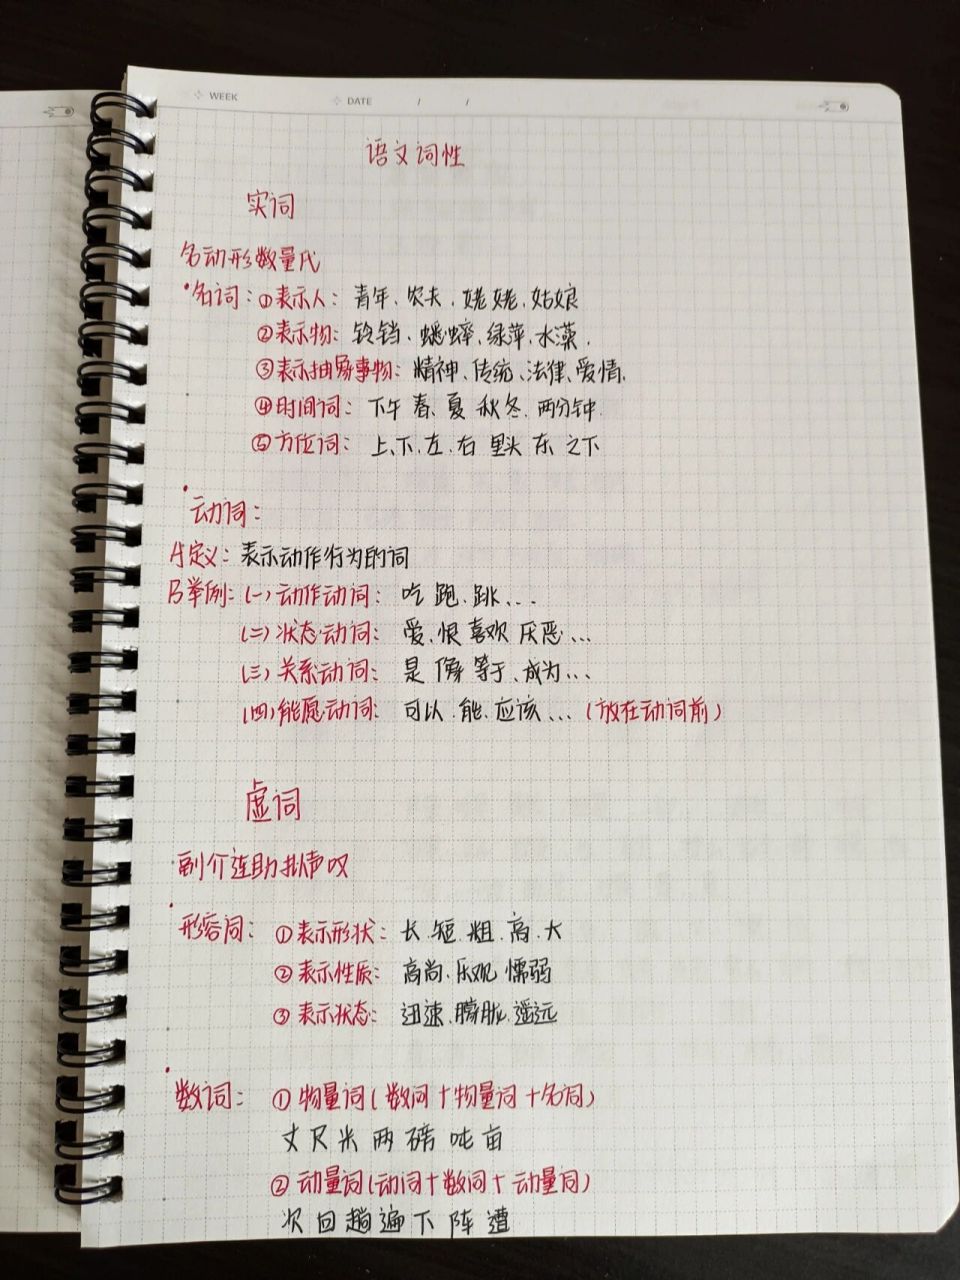 WEEK DATE / /
语文词性
实词
名动形数量代
·名词：①表示人：青年、农夫、姥姥、姑娘
②表示物：铃铛、蟋蟀、绿萍、水藻.
③表示抽象事物：精神、传统、法律、爱情.
④时间词：下午 春、夏 秋冬、两分钟.
⑤方位词：上、下、左、右 里头 东 之下
·动词：
A定义：表示动作行为的词
B举例：(一)动作动词：吃 跑、跳、...
(二)状态动词：爱、恨 喜欢 厌恶...
(三)关系动词：是 像 等于、成为...
(四)能愿动词：可以、能、应该...(放在动词前)
虚词
副介连助拟声叹
·形容词：①表示形状：长、短、粗、高、大
②表示性质：高尚、乐观 懦弱
③表示状态：迅速、朦胧、遥远
·数词：①物量词(数词+物量词+名词)
丈尺米两磅吨亩
②动量词(动词+数词+动量词)
次回趟遍下阵遭